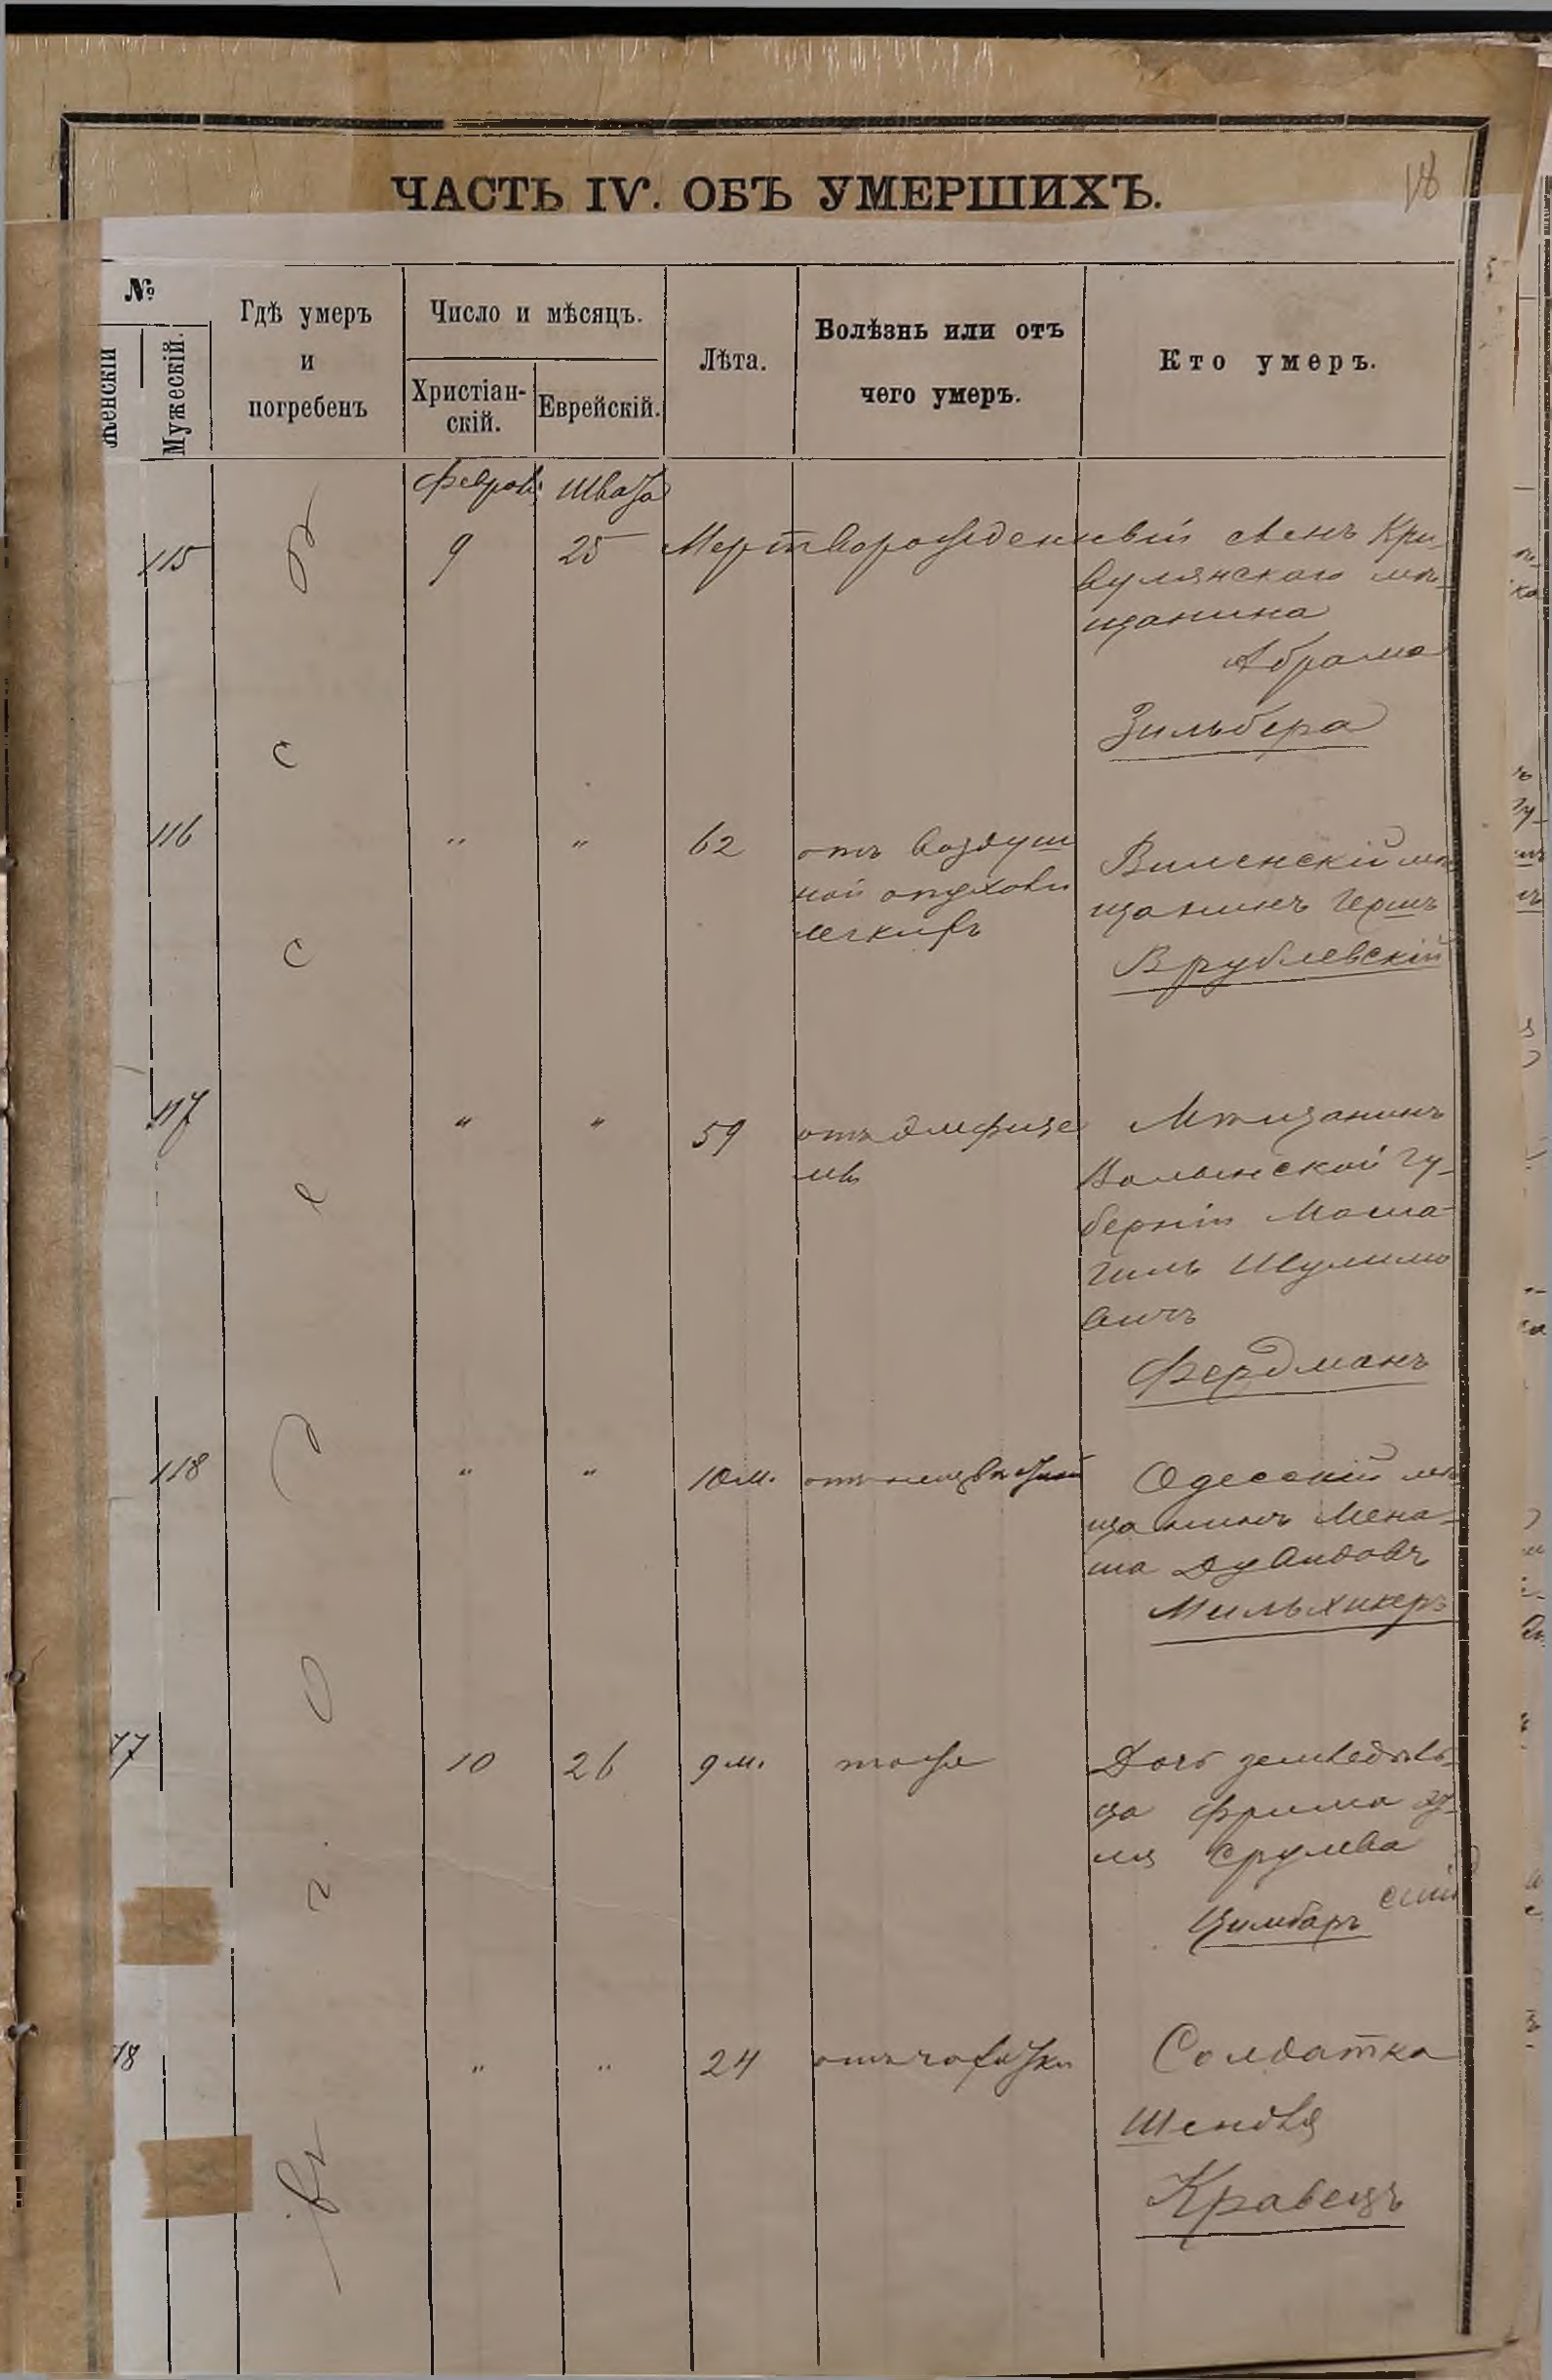 ЧАСТЬ IV. ОБЪ УМЕРШИХЪ.
18
№
Женскій
Мужескій.
Гдѣ умеръ
и
погребенъ
Число и мѣсяцъ.
Христіан-
скій.
Еврейскій.
Лѣта.
Болѣзнь или отъ
чего умеръ.
Кто умеръ.
въ г. Одессѣ
115
9
25
Мертворожденный сынъ Кри-
вулянскаго мѣ-
щанина
Абрама
Зильбера
116
"
"
62
отъ воздуш
ной опухоли
легкихъ
Виленскій мѣ
щанинъ Герш
Врублевскій
117
"
"
59
отъ эмфизе
мы
Мѣщанинъ
Волынской гу-
берніи Мошко-
Гиль Шулимо
вичъ
Фердманъ
118
"
"
10 м.
отъ
Одесскій мѣ
щанинъ Мена-
ша Дувидовъ
Мильхикеръ
77
10
26
9 м.
тоже
Дочь земледѣль-
ца Фрима
Срулева
Цимбаръ
78
"
"
24
отъ чахотки
Солдатка
Шендля
Кравецъ